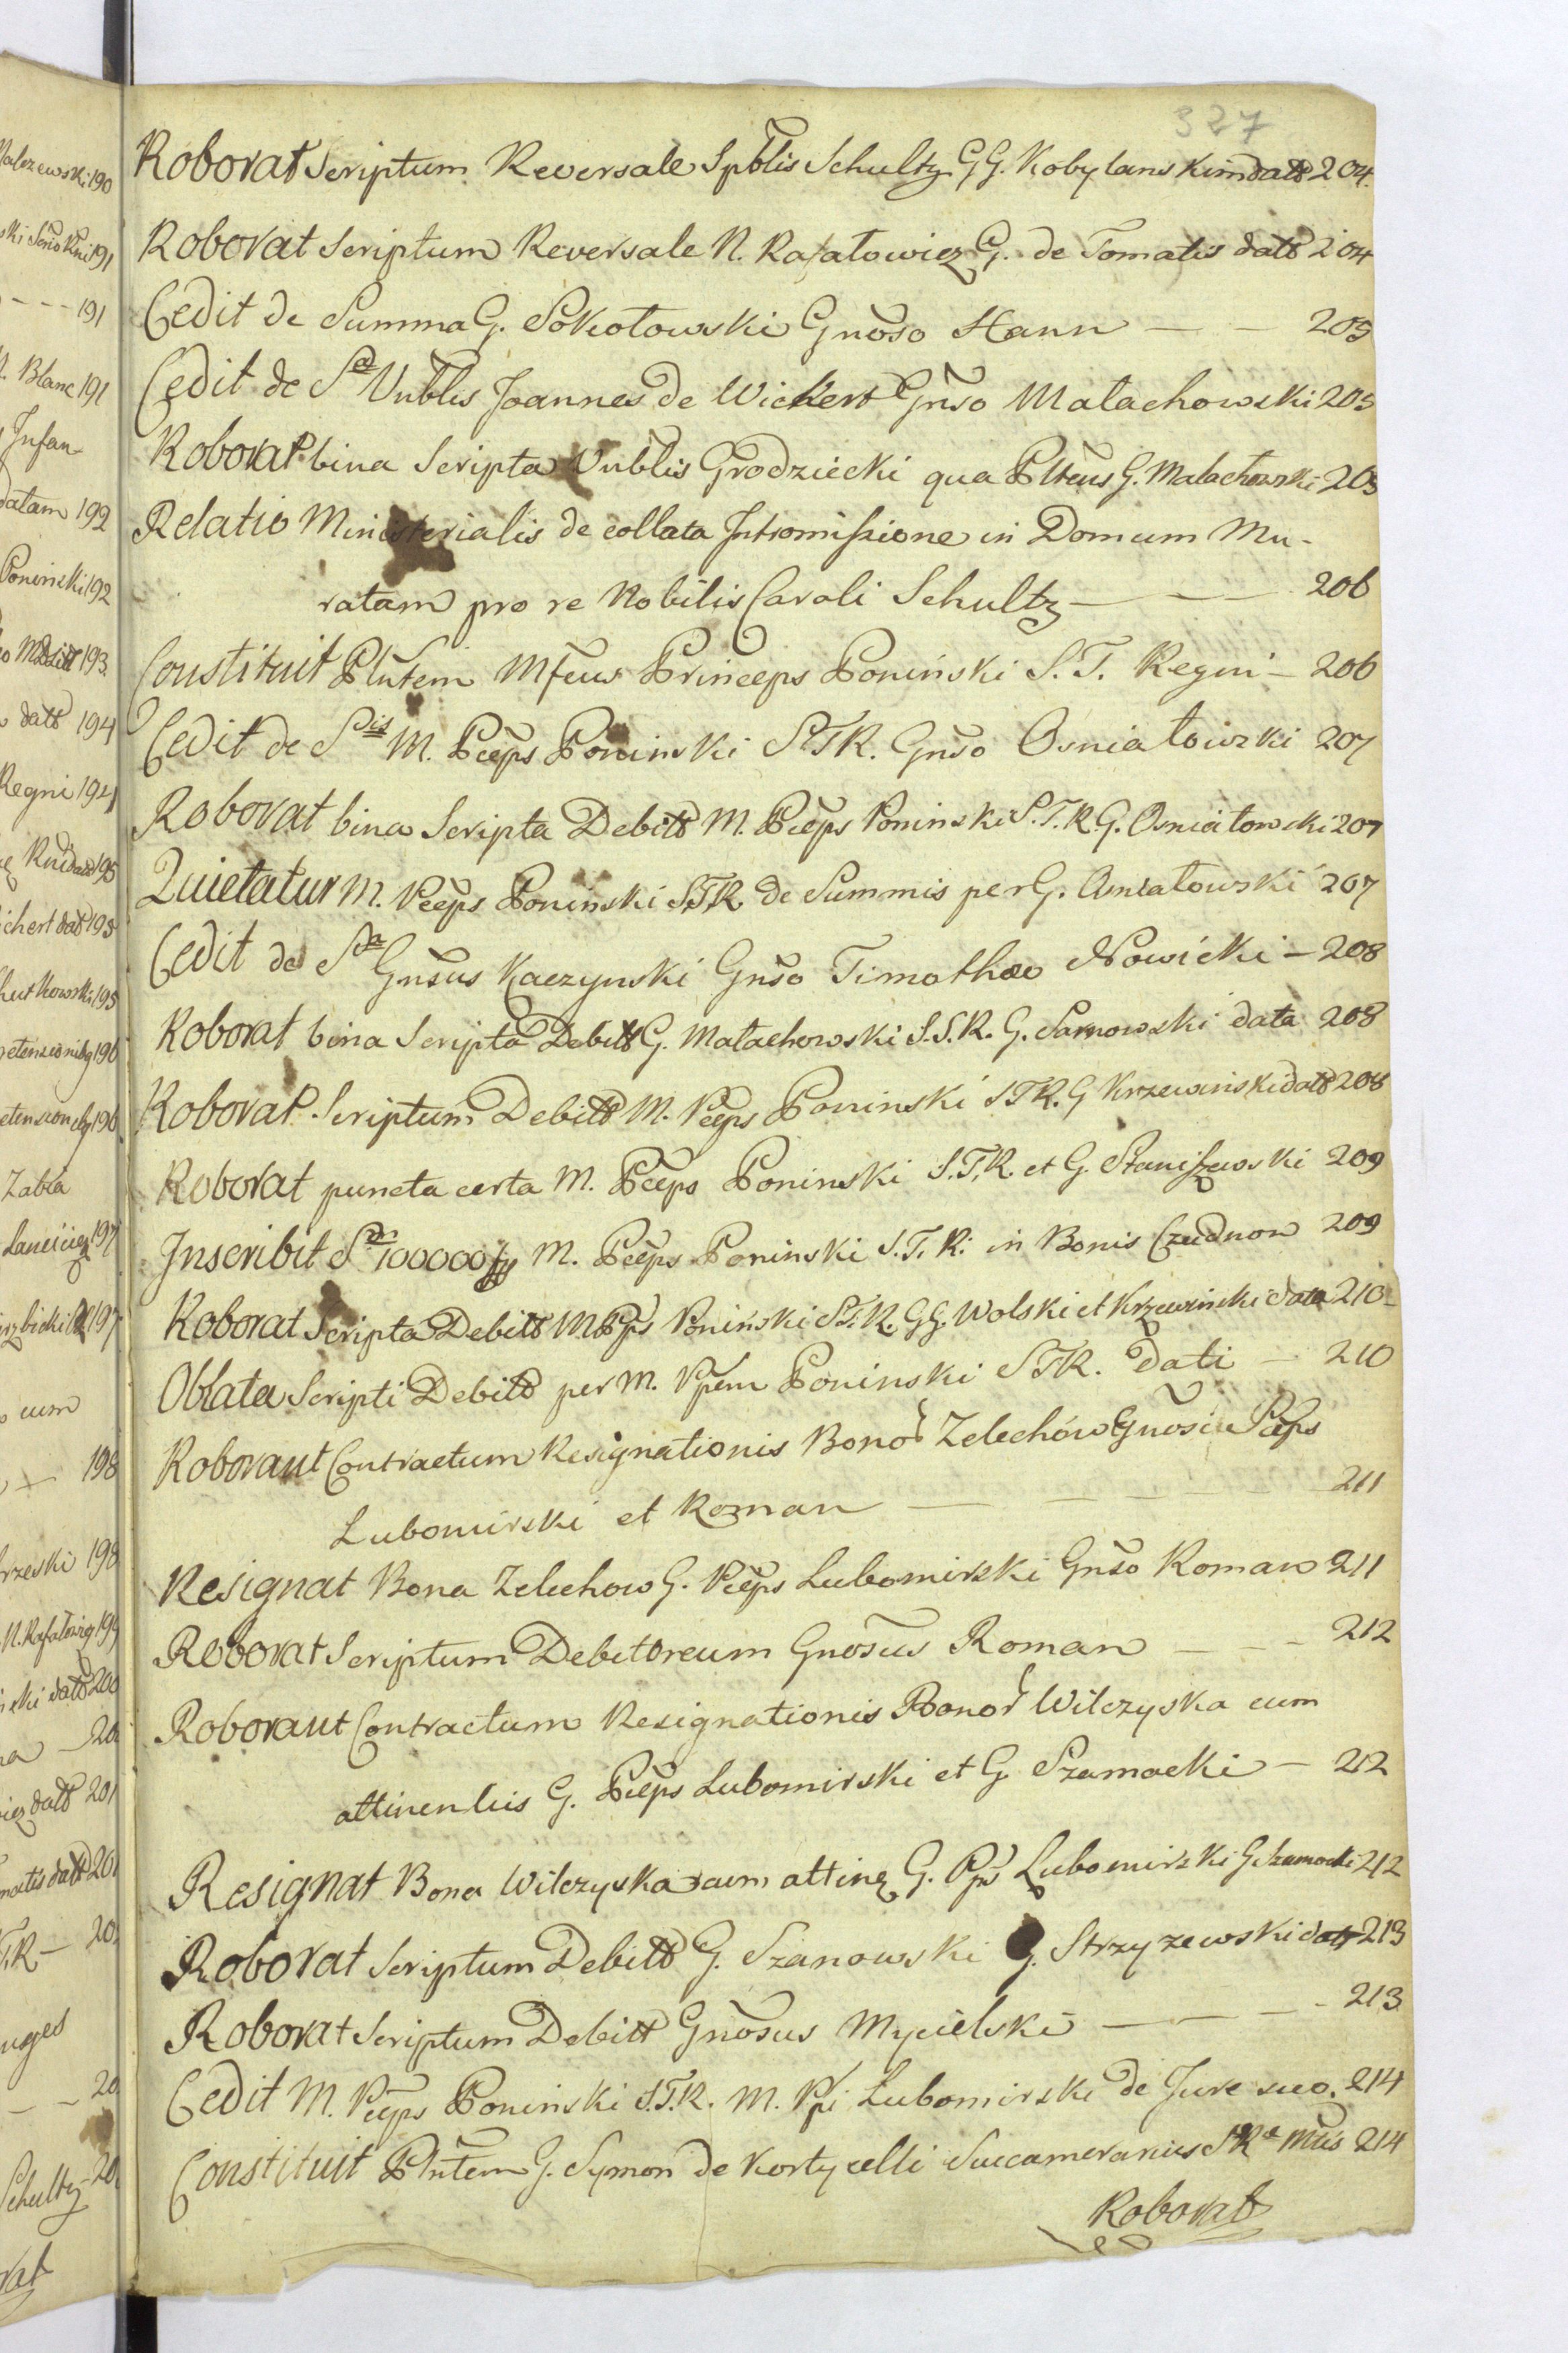 327
Roborat Scriptum Reversale Spblis Schultz GG. Kobylanskim datt 204.
Roborat Scriptum Reversale N. Rafałowicz G. de Tomatis datt 204
Cedit de Summa G. Sokołowski Gnoso Hann — — 205
Cedit de Sa Vnblis Joannes de Wickert Gnso Małachowski 205
Roborat bina Scripta Vnblis Grodziecki qua Plteus G. Małachowski 205
Relatio Ministerialis de collata Intromissione in Domum Mu-
ratam pro re Nobilis Caroli Schultz — — 206
Constituit Plntem Mfcus Princeps Poniński S. T. Regni — 206
Cedit de Sis M. Pceps Poninski STR. Gnso Osniałowski 207
Roborat bina Scripta Debitt M. Pceps Poninski S.T.R. G. Osniałowski 207
Quietatur M. Pceps Poniński STR de Summis per G. Osniałowski 207
Cedit de Sa Gnsus Kaczynski Gnso Timothæo Nowicki — 208
Roborat bina Scripta Debitt G. Małachowski S.S.R. G. Sarnowski data 208
Roborat Scriptum Debitt M. Pceps Poninski STR. G Krzewinski datt 208
Roborat puncta certa M. Pceps Poninski S.T.R. et G. Staniszewski 209
Inscribit Sm 100000 M. Pceps Poninski S.T.R. in Bonis Czudnow 209
Roborat Scripta Debitt M Pps Poniński S.T.R. GG. Wolski et Krzewinski data 210
Oblata Scripti Debitt per M. Ppem Poninski STR. dati — 210
Roborant Contractum Resignationis Bonor Zelechów Gnosi Pceps
Lubomirski et Roman — — — 211
Resignat Bona Zelechow G. Pceps Lubomirski Gnso Roman 211
Roborat Scriptum Debitoreum Gnosus Roman — — — 212
Roborant Contractum Resignationis Bonor Wilczyska cum
attinentiis G. Pceps Lubomirski et G. Szamocki — 212
Resignat Bona Wilczyska cum attinez G. Pps Lubomirski G. Szamocki 212
Roborat Scriptum Debitt G. Szanowski G. Strzyzewski dat 213
Roborat Scriptum Debitt Gnosus Mycielski — — — 213
Cedit M. Pceps Poninski S.T.R. M. Ppi Lubomirski de Jure suo. 214
Constituit Plntem G. Symon de Kortycelli Succamerarius SRæ Mtis 214
Roborat